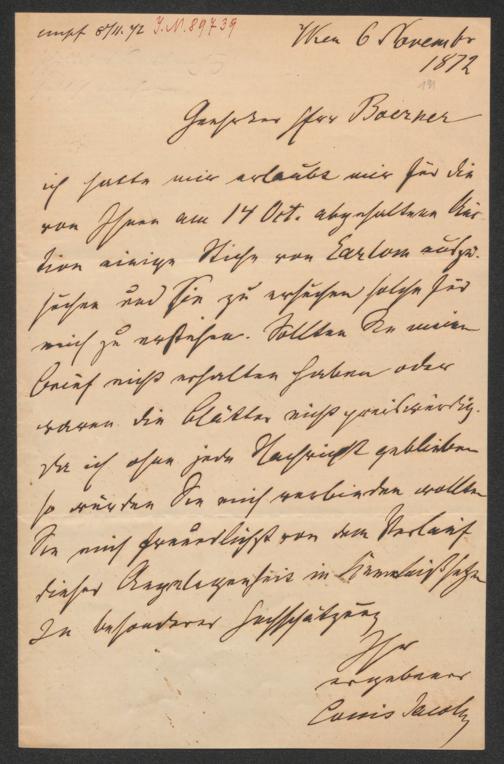 empf 8/11.72 J.N.89739
Wien 6 November
1872
191
Geehrter Herr Boerner
ich hatte mir erlaubt mir für die
von Ihnen am 14 Oct. abgehaltene Auc-
tion einige Stiche von Earlom auszu-
suchen und Sie zu ersuchen solche für
mich zu erstehen. Sollten Sie meinen
Brief nicht erhalten haben oder
waren die Blätter nicht preiswürdig.
Da ich ohne jede Nachricht geblieben
so würden Sie mich verbinden wollten
Sie mich freundlichst von dem Verlauf
dieser Angelegenheit in Kenntniß setzen
In besonderer Hochschätzung
Ihr
ergebener
Louis Jacoby